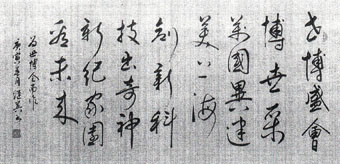 世博盛會
博玄采
萬國異建
美不一海
創新科
技出奇神
新紀家園
看未來
為世博會而作
庚寅